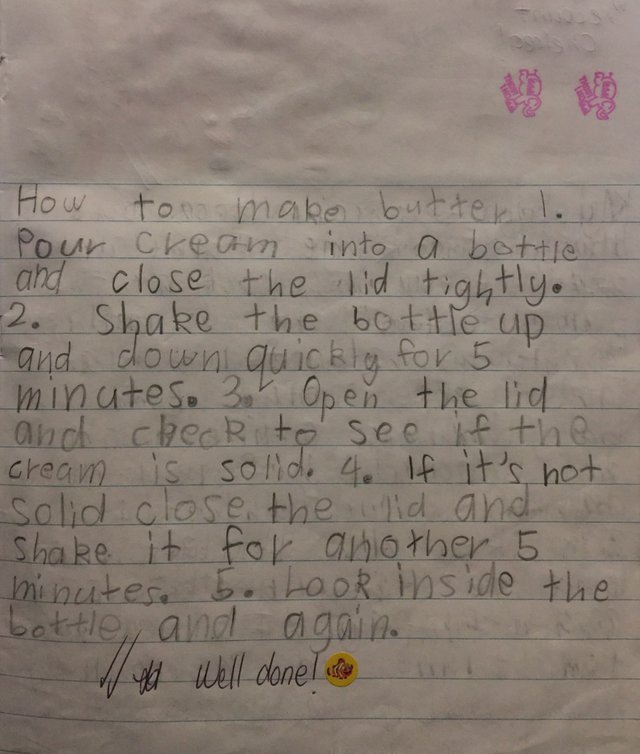 How to make butter 1.
Pour cream into a bottle
and close the lid tightly.
2. Shake the bottle up
and down quickly for 5
minutes. 3. Open the lid
and check to see if the
cream is solid. 4. If it's not
solid close the lid and
shake it for another 5
minutes. 5. Look inside the
bottle and again.
Well done!